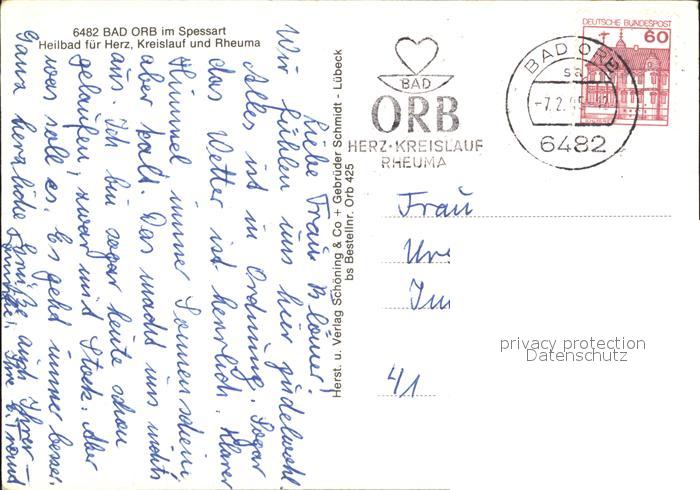 6482 BAD ORB im Spessart
Heilbad für Herz, Kreislauf und Rheuma
Liebe Frau Blömer,
Wir fühlen uns hier pudelwohl.
Alles ist in Ordnung. Sogar
das Wetter ist herrlich. Klarer
Himmel immer Sonnenschein,
aber kalt. Das macht uns nichts
aus. Ich bin sogar heute schon
gelaufen, zwar mit Stock. Aber
was soll es. Es geht immer besser.
Ganz herzliche Grüße auch Ihrer
Ihre
Herst. u. Verlag Schöning & Co + Gebrüder Schmidt - Lübeck
bs Bestellnr. Orb 425
BAD
ORB
HERZ·KREISLAUF
RHEUMA
DEUTSCHE BUNDESPOST
60
BAD ORB
sa
-7.2.
6482
Frau
41
privacy protection
Datenschutz